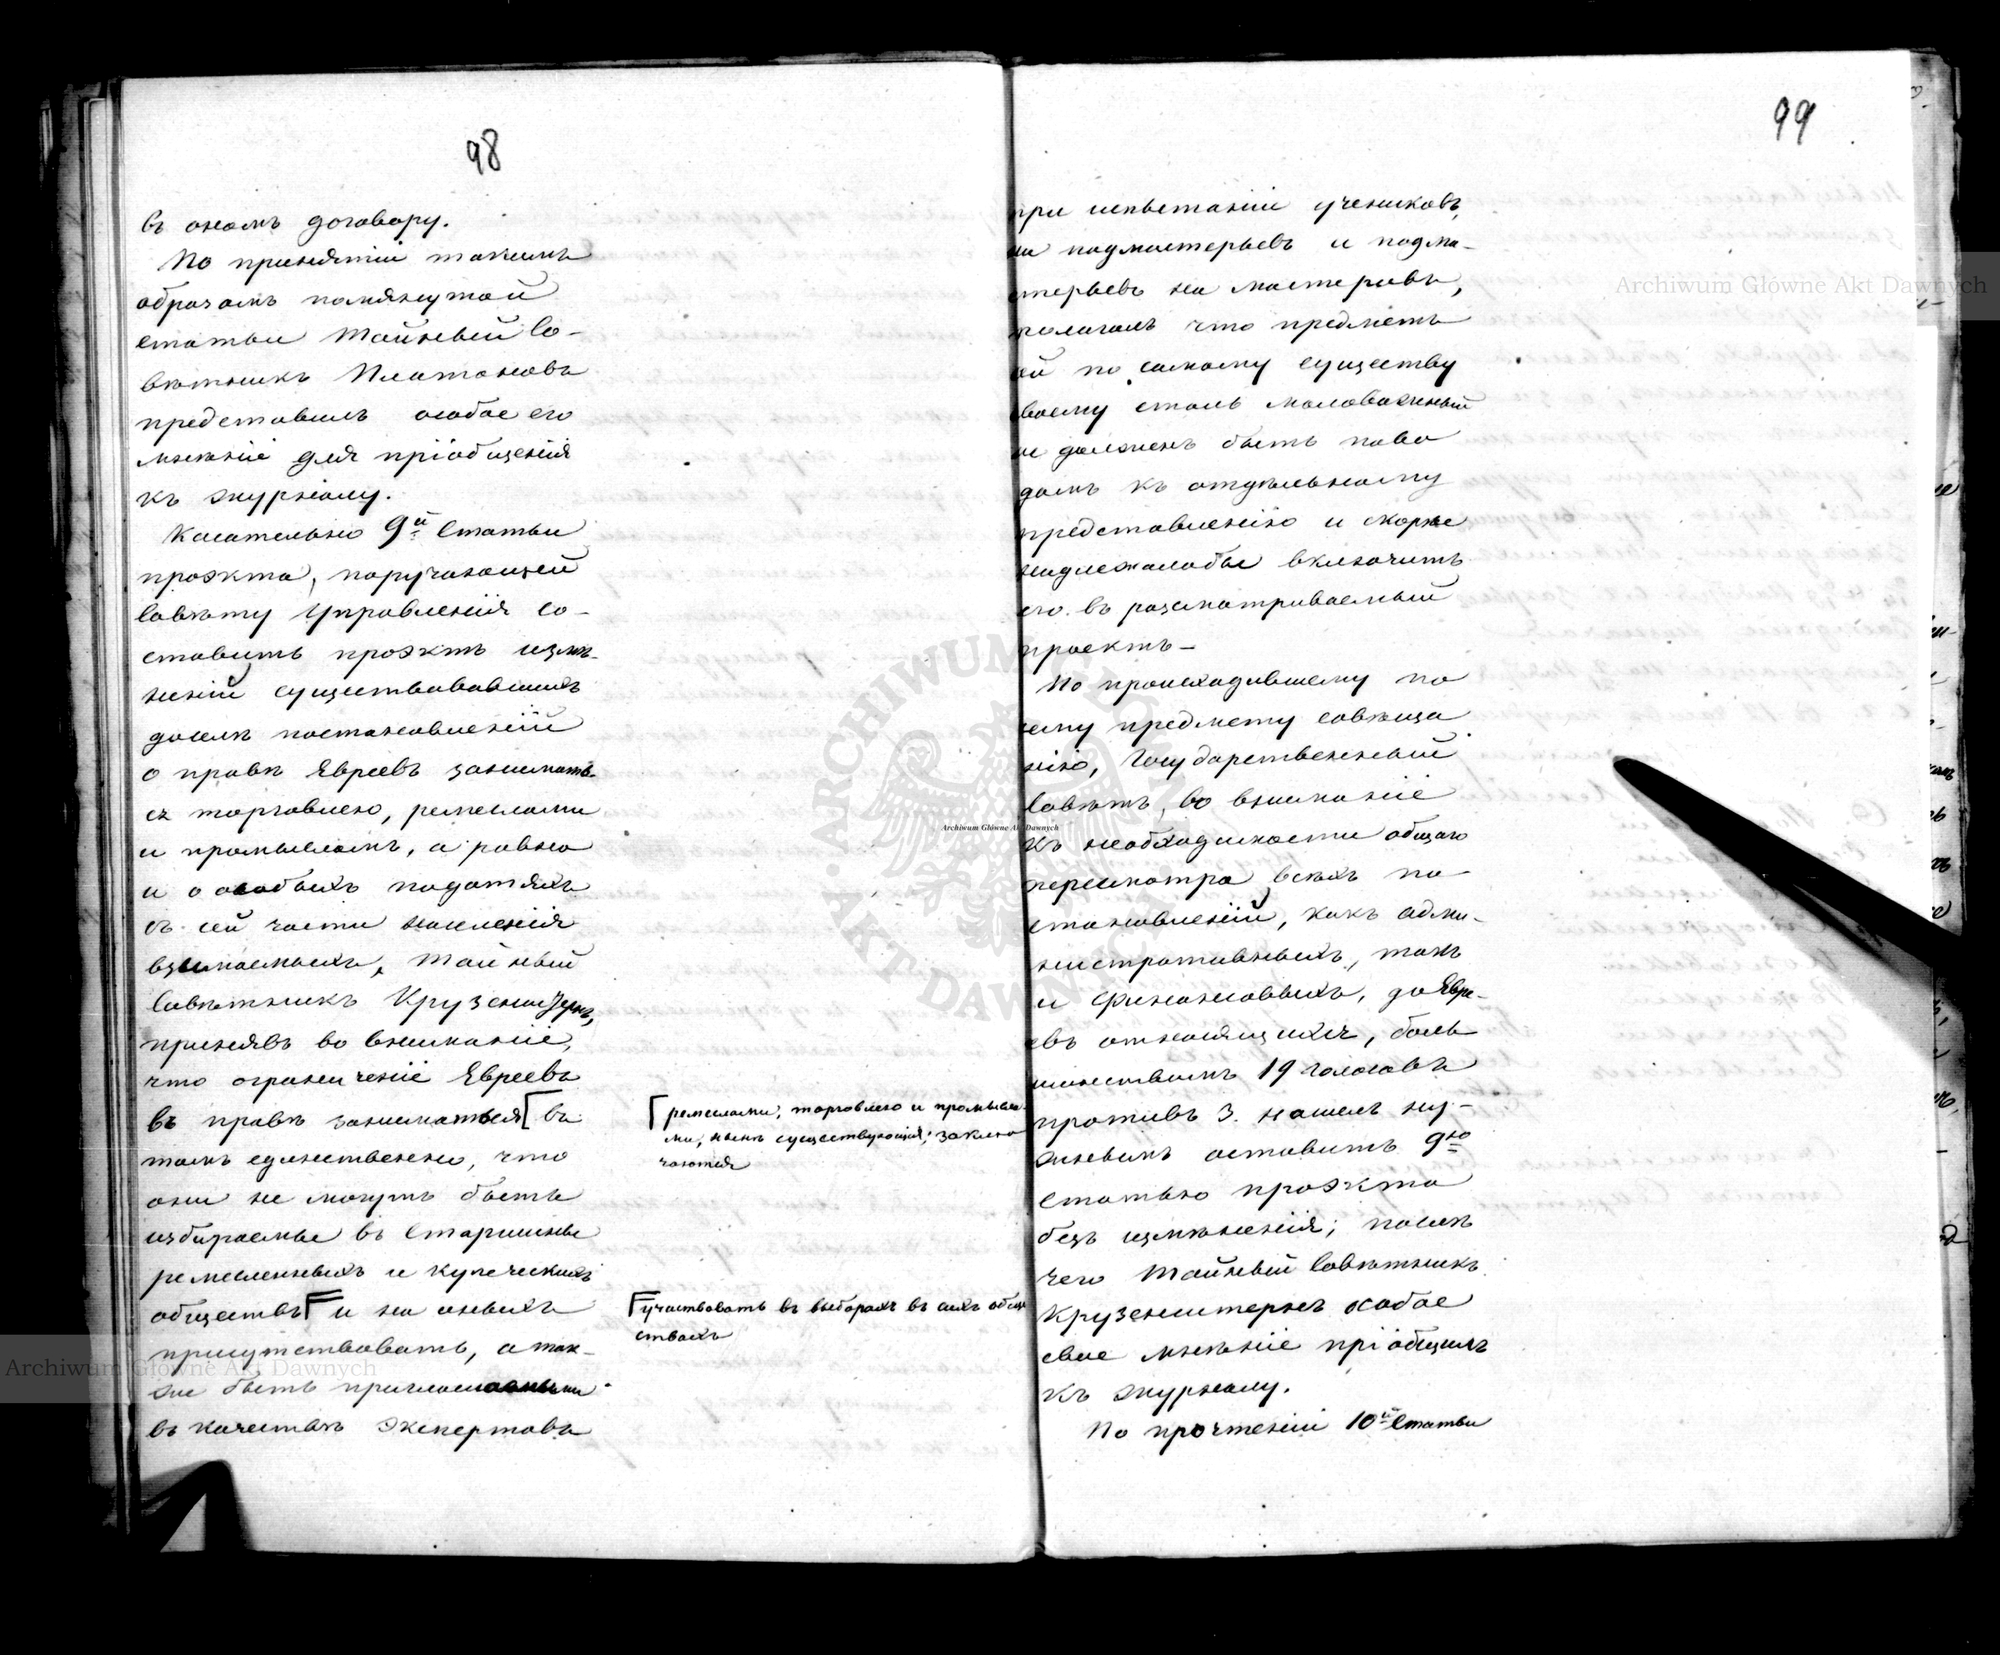 98
въ ономъ договору.
По принятіи такимъ
образомъ помянутой
статьи Тайный Со-
вѣтникъ Платоновъ
представилъ особое его
мнѣніе для пріобщенія
къ журналу.
Касательно 9й Статьи
проэкта, поручающей
Совѣту Управленія со-
ставить проэктъ измѣ-
неній существовавшихъ
доселѣ постановленій
о правѣ Евреевъ заниматъ-
ся торговлею, ремеслами
и промысломъ, а равно
и о особыхъ податяхъ
съ сей части населенія
взимаемыхъ, Тайный
Совѣтникъ Крузенштернъ,
принявъ во вниманіе,
что ограниченіе Евреевъ
въ правѣ заниматься въ
томъ единственно, что
они не могутъ быть
избираемы въ Старшины
ремесленныхъ и купеческихъ
обществъ и на оныхъ
присутствовать, а так-
же быть приглашаемыми
въ качествѣ экспертовъ
ремеслами, торговлею и промысла-
ми, нынѣ существующія, заклю
чаются
участвовать въ выборахъ въ сихъ обще
ствахъ
99
при испытаніи учениковъ,
на подмастерьевъ и подма-
стерьевъ на мастеровъ,
полагалъ что предметъ
ой по самому существу
своему столь маловажный
не долженъ быть пово
домъ къ отдѣльному
представленію и скорѣе
надлежалобы включить
его въ разсматриваемый
проектъ-
По происходившему по
сему предмету совѣща
нію, Государственный
Совѣтъ, во вниманіе
къ необходимости общаго
пересмотра всѣхъ по-
становленій, какъ адми-
нистративныхъ, такъ
и финансовыхъ, до Евре-
евъ относящихся, боль
шинствомъ 19 голосовъ
противъ 3. нашелъ ну-
жнымъ оставить 9ю
статью проэкта
безъ измѣненія; послѣ
чего Тайный Совѣтникъ
Крузенштернъ особое
свое мнѣніе пріобщилъ
къ журналу.
По прочтеніи 10й Статьи
Archiwum Główne Akt Dawnych
Archiwum Główne Akt Dawnych
Archiwum Główne Akt Dawnych